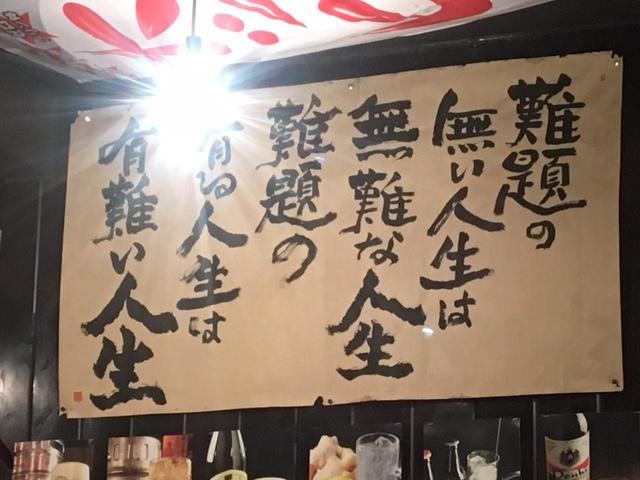 難題の
無い人生は
無難な人生
難題の
有る人生は
有難い人生